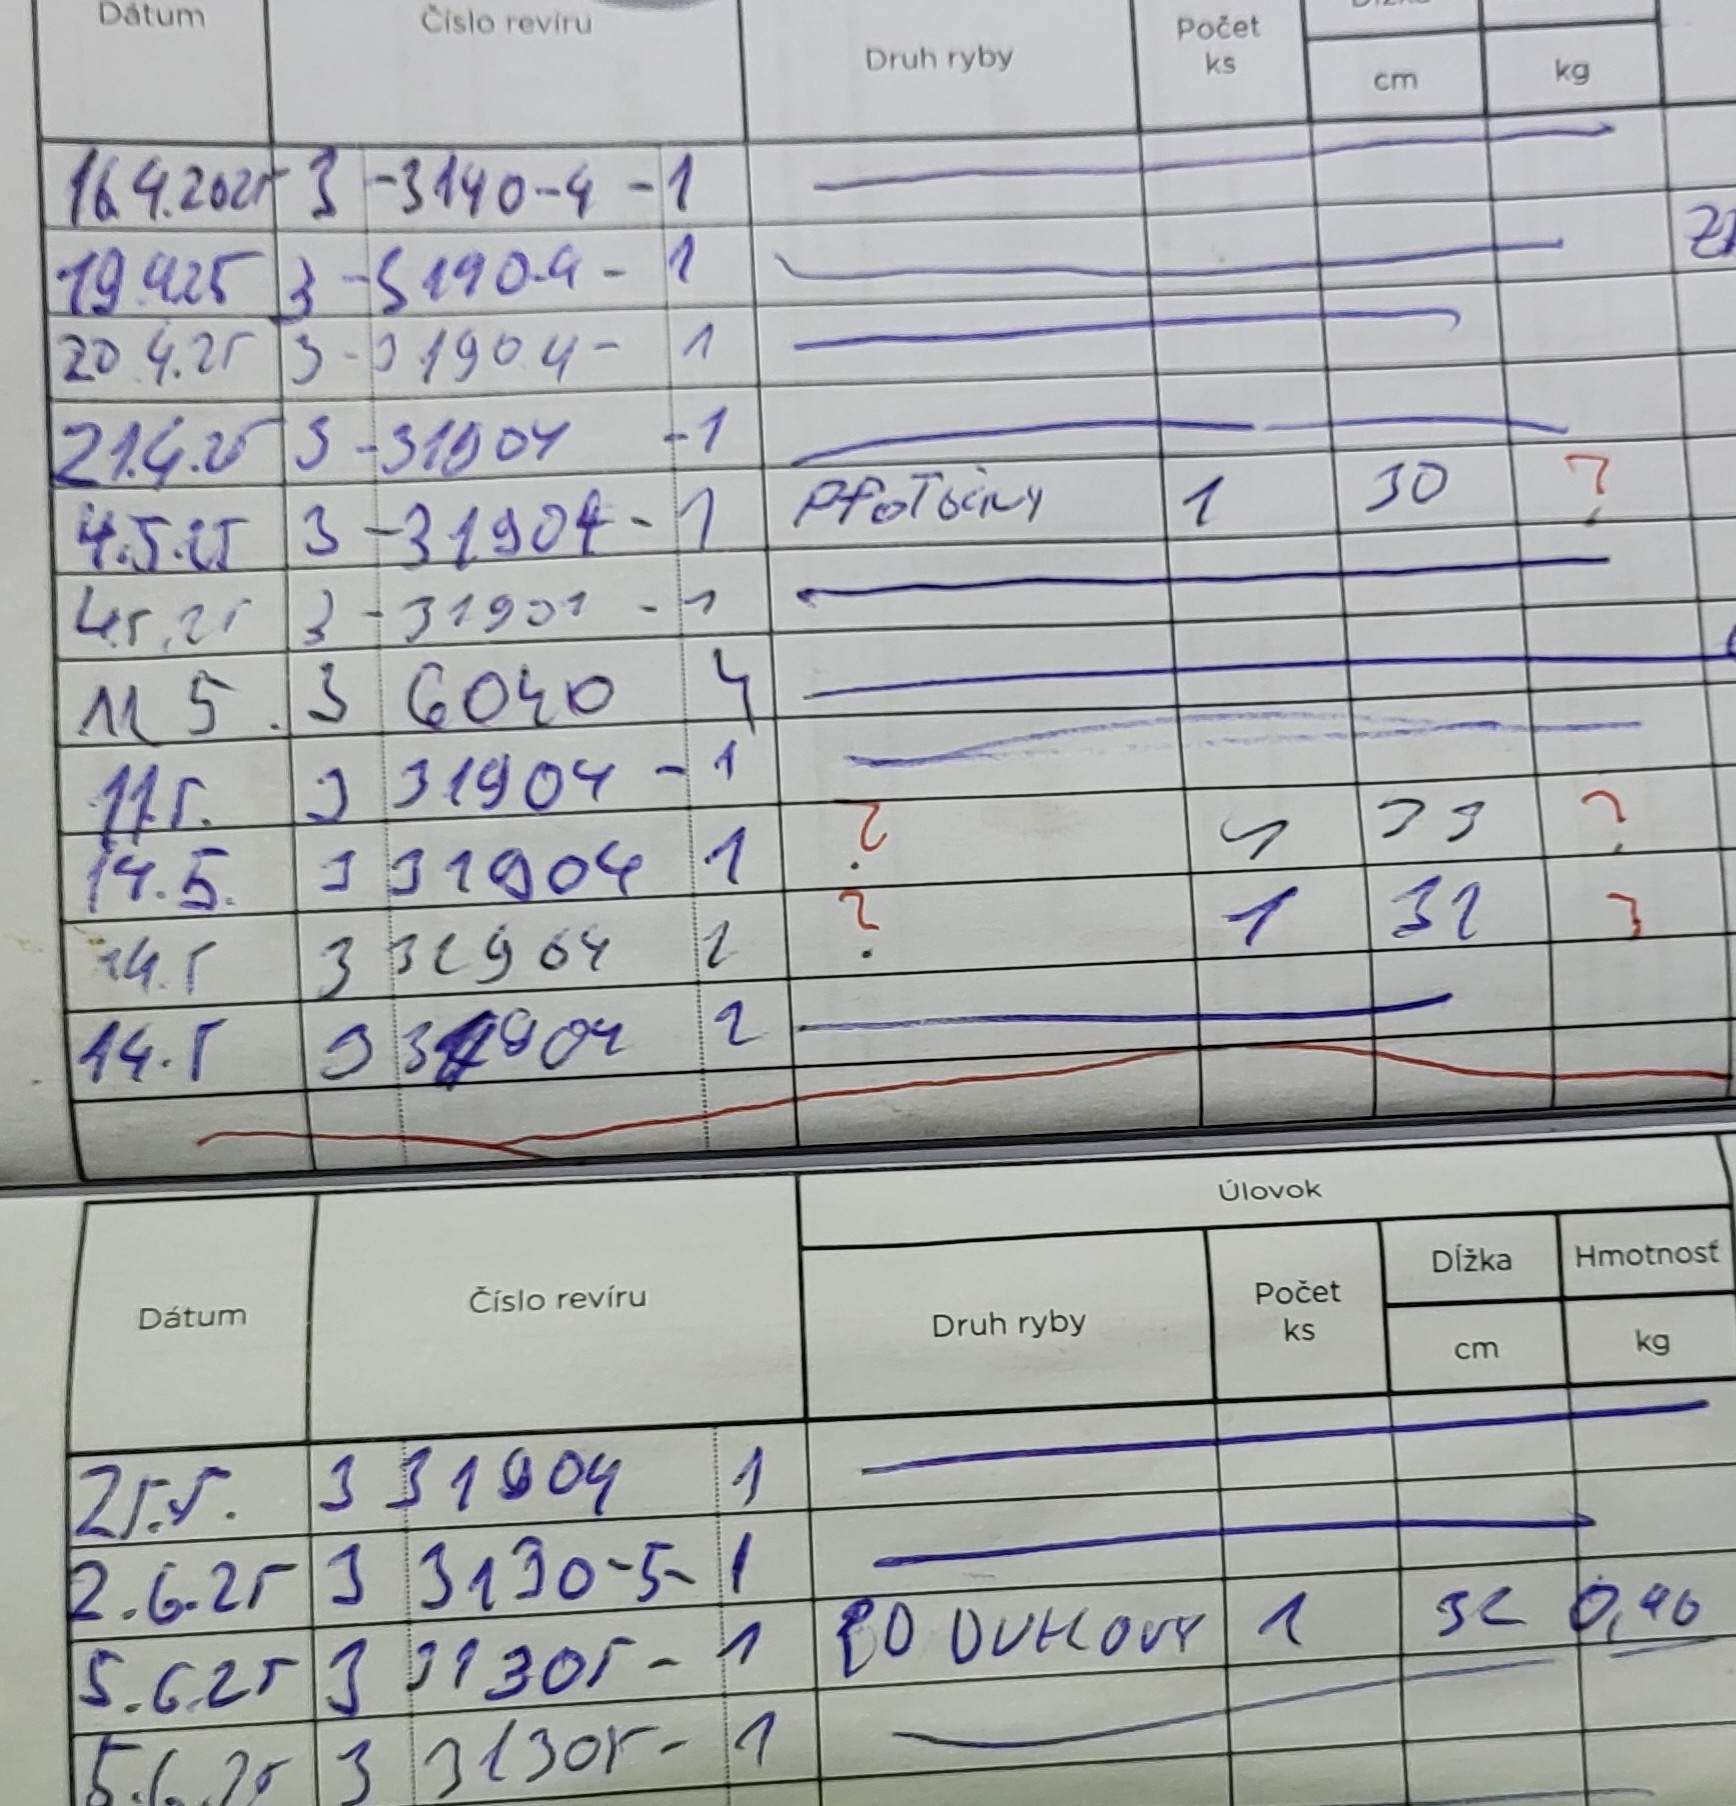 Dátum Číslo revíru Druh ryby Počet ks cm kg
16.4.2025 3 -3140-4 -1
19.4.25 3 -3190-4- 1
20.4.25 3-31904- 1
21.4.25 3 -31904 -1
4.5.25 3 -31904- 1 1 30 ?
4.5.25 3 -31901 -1
11 5. 3 6040 4
11.5. 3 31904 - 1
14.5. 3 31904 1 ? 4 33 ?
14.5 3 31904 1 ? 1 31 ?
14.5 3 31904 2
Úlovok
Dátum Číslo revíru Druh ryby Počet ks Dĺžka cm Hmotnosť kg
25.5. 3 31904 1
2.6.25 3 3130-5- 1
5.6.25 3 31305- 1 1 32 0,40
5.6.25 3 31305- 1